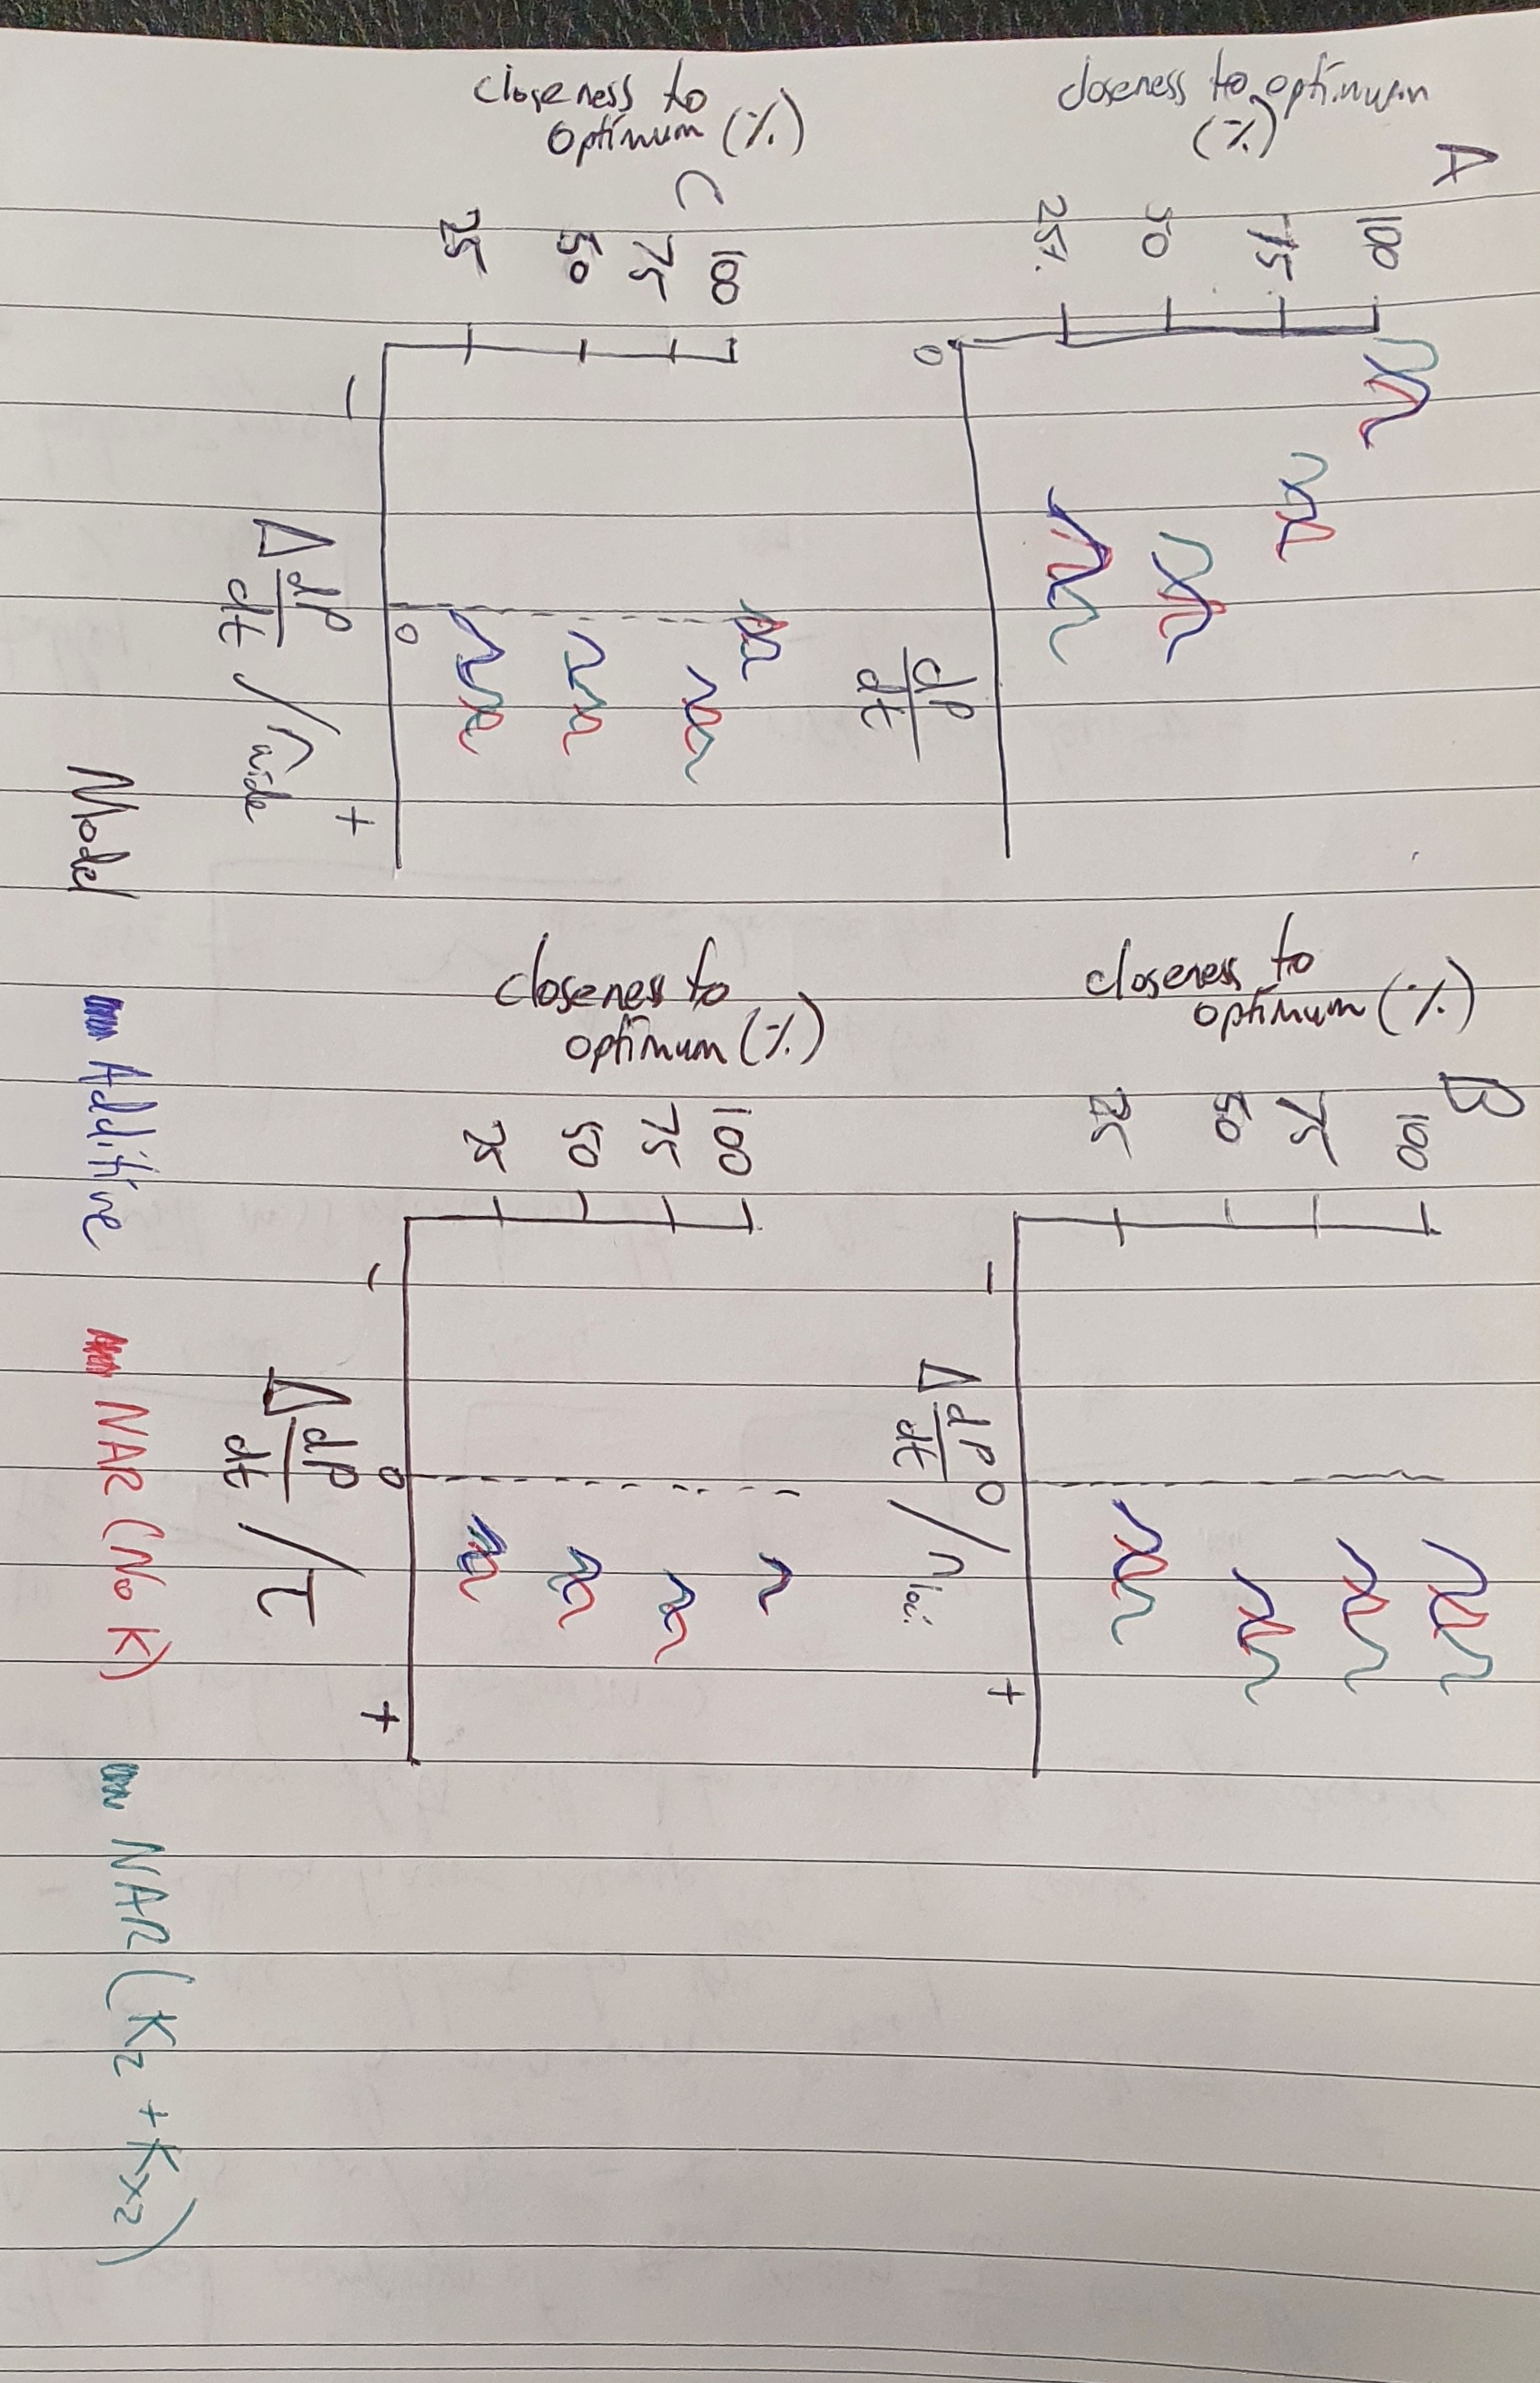 A
closeness to optimum
(%)
100
75
50
25%
0
dP
dt
B
closeness to
optimum (%)
100
75
50
25
- 0 +
Δ dP/dt / n loci
C
closeness to
optimum (%)
100
75
50
25
0
- +
Δ dP/dt / r wide
closeness to
optimum (%)
100
75
50
25
- 0 +
Δ dP/dt / τ
Model Additive NAR (No K) NAR (KZ + KXZ)